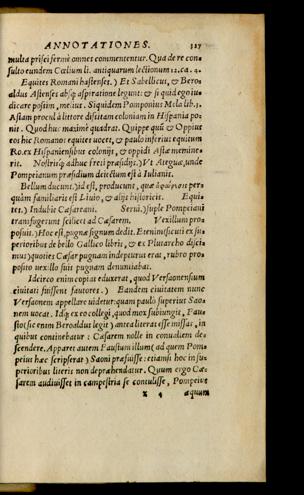 ANNOTATIONES. 327
multa prisci sermè omnes commententur. Qua de re con-
sulto eundem Cœlium li. antiquarum lectionum 12. ca. 4.
Equites Romani hastenses.) Et Sabellicus, & Bero-
aldus Astenses absq; aspiratione legunt: & si quid ego iu-
dicare possim, melius. Siquidem Pomponius Mela lib. 3.
Astam procul à littore distitam coloniam in Hispania po-
nit. Quod huc maximè quadrat. Quippe quũ & Oppius
eos hic Romanos equites vocet, & paulo inferius equitum
Ro. ex Hispaniensibus colonijs, & oppidi Astæ memine-
rit. Nostrisq; adhuc freti præsidijs.) Vt Ategua, unde
Pompeianum præsidium deiectum est à Iulianis.
Bellum ducunt.) id est, producunt, quæ per-
quàm familiaris est Liuio, & alijs historicis. Equi-
tes.) Indubie Cæsareani. Serui.) suple Pompeiani
transfugerunt scilicet ad Cæsarem. Vexillum pro-
posuit.) Hoc est, pugnæ signum dedit. Et eminus sicui ex su-
perioribus de bello Gallico libris, & ex Plutarcho disci-
mus) quoties Cæsar pugnam indepturus erat, rubro pro-
posito uexillo suis pugnam denuntiabat.
Idcirco enim copias eduxerat, quod Versaonensium
ciuitati fuissent fautores.) Eandem ciuitatem nunc
Versaonem appellare uidetur: quam paulò superius Sao-
nem uocat. Idq; ex eo collegi, quod mox subiungit, Fau-
sto (sic enim Beroaldus legit) antea literas esse missas, in
quibus continebatur: Cæsarem nolle in conuallem de-
scendere. Apparet autem Faustum illum (ad quem Pom-
peius hæc scripserat) Saoni præfuisse: etiamsi hoc in su-
perioribus literis non deprehendatur. Quum ergo Cæ-
sarem audiuisset in campestria se contulisse, Pompeius
x 4 aquum